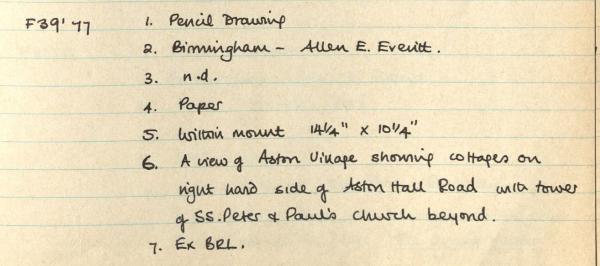 F39'77 1. Pencil Drawing
2. Birmingham - Allen E. Everitt.
3. n.d.
4. Paper
5. Within mount 14¼" x 10¼"
6. A view of Aston Village showing cottages on
right hand side of Aston Hall Road with tower
of SS. Peter & Paul's church beyond.
7. Ex BRL.